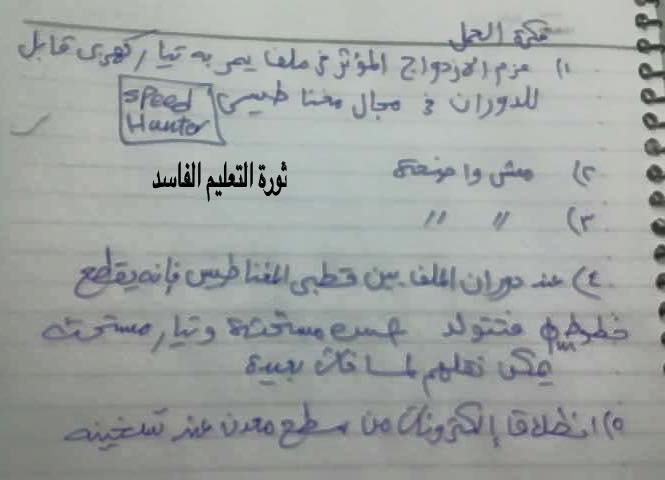 فكرة العمل
١) عزم الازدواج المؤثر في ملف يمر به تيار كهربى قابل
للدوران في مجال مغناطيسى
Speed
Hunter
ثورة التعليم الفاسد
٢) مش واضحة
٣) // //
٤) عند دوران الملف بين قطبى المغناطيس فإنه يقطع
خطوط فتتولد مستحثة وتيار مستحث
يمكن نقلهم لمسافات بعيدة
٥) انطلاق إلكترونات من سطح معدن عند تسخينه